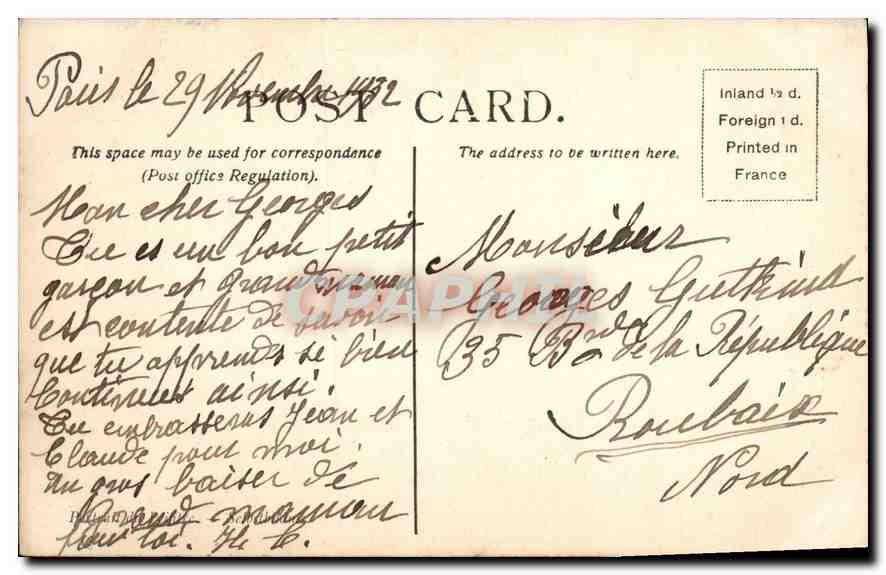 Paris le 29 Novembre 1932
POST CARD.
This space may be used for correspondence
(Post office Regulation).
The address to be written here.
Inland ½ d.
Foreign 1 d.
Printed in
France
Mon cher Georges
Tu es un bon petit
garçon et Grand maman
est contente de savoir
que tu apprends si bien
Continues ainsi.
Tu embrasseras Jean et
Claude pour moi.
un gros baiser de
Grand maman
pour toi. H. C.
Monsieur
Georges Gutkind
35 Brd de la République
Roubaix
Nord
CPAPHIL